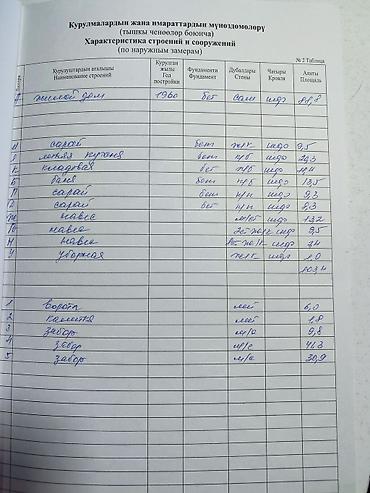 Курулмалардын жана имараттардын мүнөздөмөлөрү
(тышкы ченөөлөр боюнча)
Характеристика строений и сооружений
(по наружным замерам)
№ 2 Таблица
Литера Курулуштардын аталышы Наименование строений Курулган жылы Год постройки Фундаменти Фундамент Дубалдары Стены Чатыры Кровля Аянты Площадь
жилой дом 1960 бет сам шифр
сарай бет ж/к шифр 9,5
летняя кухня бет п/б шифр
кладовая бет п/б шифр
баня бет п/б шифр 13,5
сарай бет п/п шифр 9,3
сарай бет п/п шифр 8,3
навес м/ст шифр 13,2
навес шифр 9,5
навес шифр
У уборная ж/к шифр 1,0
103,4
1 ворота мет 6,0
2 калитка мет 1,8
3 забор м/с 9,8
4 забор м/с 41,3
5 забор м/с 30,9